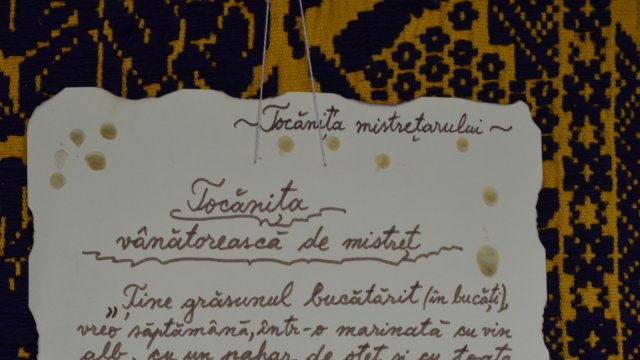 ~Tocănița mistrețarului~
Tocănița
vânătorească de mistreț
„Ține grăsunul bucătărit (în bucăți),
vreo săptămână, într-o marinată cu vin
alb, cu un pahar de oțet și cu toate